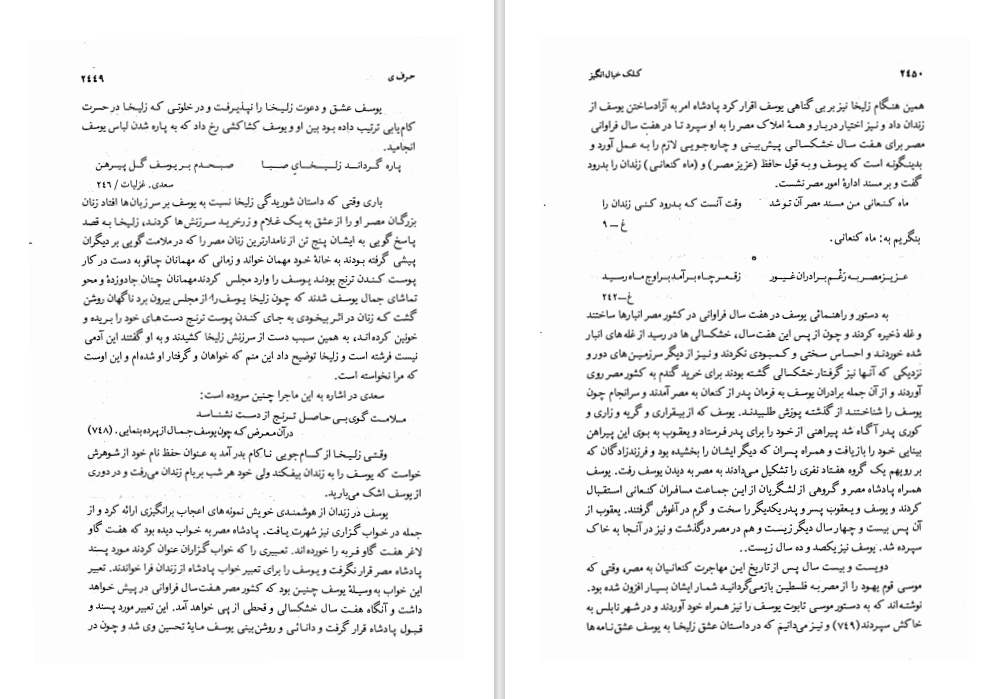 حرف ی
۲۴۴۹
یوسف عشق و دعوت زلیخا را نپذیرفت و در خلوتی که زلیخا در حسرت
کام‌یابی ترتیب داده بود بین او و یوسف کشاکشی رخ داد که به پاره شدن لباس یوسف
انجامید.
پاره گرداند زلیخای صبا صبحدم بر یوسف گل پیرهن
سعدی. غزلیات / ۲۴۶
باری وقتی که داستان شوریدگی زلیخا نسبت به یوسف بر سر زبان‌ها افتاد زنان
بزرگان مصر او را از عشق به یک غلام و زرخرید سرزنش‌ها کردند، زلیخا به قصد
پاسخ گویی به ایشان پنج تن از نامدارترین زنان مصر را که در ملامت گویی بر دیگران
پیشی گرفته بودند به خانهٔ خود مهمان خواند و زمانی که مهمانان چاقو به دست در کار
پوست کندن ترنج بودند یوسف را وارد مجلس کردند مهمانان چنان جادوزده و محو
تماشای جمال یوسف شدند که چون زلیخا یوسف را از مجلس بیرون برد ناگهان روشن
گشت که زنان در اثر بیخودی به جای کندن پوست ترنج دست‌های خود را بریده و
خونین کرده‌اند، به همین سبب دست از سرزنش زلیخا کشیدند و به او گفتند این آدمی
نیست فرشته است و زلیخا توضیح داد این منم که خواهان و گرفتار او شده‌ام و این اوست
که مرا نخواسته است.
سعدی در اشاره به این ماجرا چنین سروده است:
ملامت گوی بی حاصل ترنج از دست نشناسد
در آن معرض که چون یوسف جمال از پرده بنمایی. (۷۴۸)
وقتی زلیخا از کام‌جویی ناکام بدر آمد به عنوان حفظ نام خود از شوهرش
خواست که یوسف را به زندان بیفکند ولی خود هر شب بر بام زندان می‌رفت و در دوری
از یوسف اشک می‌بارید.
یوسف در زندان از هوشمندی خویش نمونه‌های اعجاب برانگیزی ارائه کرد و از
جمله در خواب گزاری نیز شهرت یافت. پادشاه مصر به خواب دیده بود که هفت گاو
لاغر هفت گاو فربه را خورده‌اند. تعبیری را که خواب گزاران عنوان کردند مورد پسند
پادشاه مصر قرار نگرفت و یوسف را برای تعبیر خواب پادشاه از زندان فرا خواندند. تعبیر
این خواب به وسیلهٔ یوسف چنین بود که کشور مصر هفت سال فراوانی در پیش خواهد
داشت و آنگاه هفت سال خشکسالی و قحطی از پی خواهد آمد. این تعبیر مورد پسند و
قبول پادشاه قرار گرفت و دانائی و روشن‌بینی یوسف مایهٔ تحسین وی شد و چون در
۲۴۵۰
کلک خیال‌انگیز
همین هنگام زلیخا نیز بر بی گناهی یوسف اقرار کرد پادشاه امر به آزادساختن یوسف از
زندان داد و نیز اختیار دربار و همهٔ املاک مصر را به او سپرد تا در هفت سال فراوانی
مصر برای هفت سال خشکسالی پیش‌بینی و چاره‌جویی لازم را به عمل آورد و
بدینگونه است که یوسف و به قول حافظ (عزیز مصر) و (ماه کنعانی) زندان را بدرود
گفت و بر مسند ادارهٔ امور مصر نشست.
ماه کنعانی من مسند مصر آن تو شد وقت آنست که بدرود کنی زندان را
غ ــ ۹
بنگریم به: ماه کنعانی.
عزیز مصر به رَغْم برادران غیور ز قعر چاه برآمد بر اوج ماه رسید
غ ــ ۲۴۲
به دستور و راهنمائی یوسف در هفت سال فراوانی در کشور مصر انبارها ساختند
و غله ذخیره کردند و چون از پس این هفت سال، خشکسالی ها در رسید از غله‌های انبار
شده خوردند و احساس سختی و کمبودی نکردند و نیز از دیگر سرزمین‌های دور و
نزدیکی که آنها نیز گرفتار خشکسالی گشته بودند برای خرید گندم به کشور مصر روی
آوردند و از آن جمله برادران یوسف به فرمان پدر از کنعان به مصر آمدند و سرانجام چون
یوسف را شناختند از گذشته پوزش طلبیدند. یوسف که از بیقراری و گریه و زاری و
کوری پدر آگاه شد پیراهنی از خود را برای پدر فرستاد و یعقوب به بوی این پیراهن
بینایی خود را بازیافت و همراه پسران که دیگر ایشان را بخشیده بود و فرزندزادگان که
بر رویهم یک گروه هفتاد نفری را تشکیل می‌دادند به مصر به دیدن یوسف رفت. یوسف
همراه پادشاه مصر و گروهی از لشگریان از این جماعت مسافران کنعانی استقبال
کردند و یوسف و یعقوب پسر و پدر یکدیگر را سخت و گرم در آغوش گرفتند. یعقوب از
آن پس بیست و چهار سال دیگر زیست و هم در مصر درگذشت و نیز در آنجا به خاک
سپرده شد. یوسف نیز یکصد و ده سال زیست..
دویست و بیست سال پس از تاریخ این مهاجرت کنعانیان به مصر، وقتی که
موسی قوم یهود را از مصر به فلسطین بازمی‌گردانید شمار ایشان بسیار افزون شده بود.
نوشته‌اند که به دستور موسی تابوت یوسف را نیز همراه خود آوردند و در شهر نابلس به
خاکش سپردند (۷۴۹) و نیز می‌دانیم که در داستان عشق زلیخا به یوسف عشق‌نامه‌ها